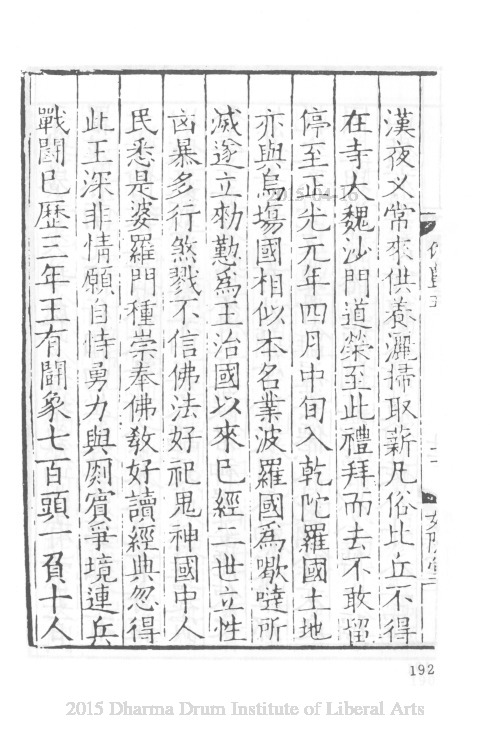 漢夜叉常來供養灑掃取薪凡俗比丘不得
在寺大魏沙門道榮至此禮拜而去不敢留
停至正光元年四月中旬入乾陀羅國土地
亦與烏場國相似本名業波羅國爲嚈噠所
滅遂立勑懃爲王治國以來已經二世立性
凶暴多行煞戮不信佛法好祀鬼神國中人
民悉是婆羅門種崇奉佛教好讀經典忽得
此王深非情願自恃勇力與罽賓爭境連兵
戰鬭已歷三年王有鬭象七百頭一負十人
192
2015 Dharma Drum Institute of Liberal Arts